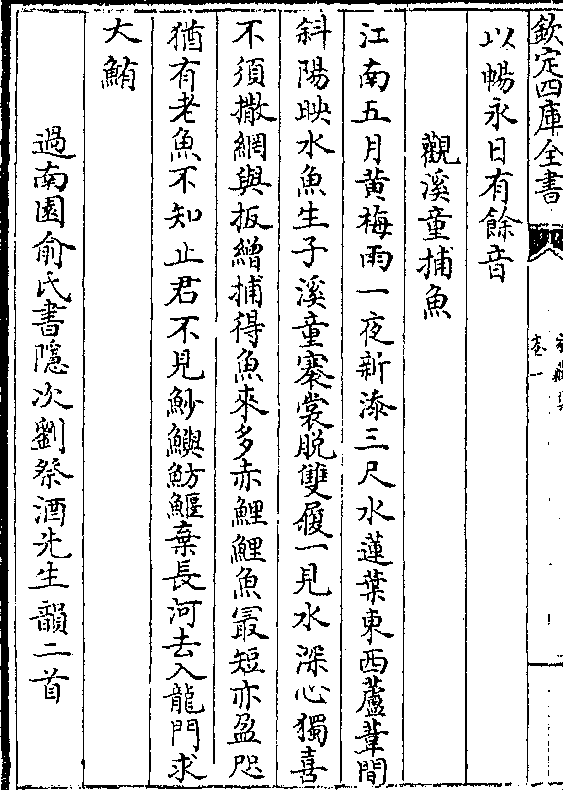 欽定四庫全書
卷一
以暢永日有餘音
觀溪童捕魚
江南五月黄梅雨一夜新添三尺水蓮葉東西蘆葦間
斜陽映水魚生子溪童褰裳脱雙履一見水深心獨喜
不須撒網與扳繒捕得魚來多赤鯉鯉魚冣短亦盈咫
猶有老魚不知止君不見魦鱮魴鰋棄長河去入龍門求
大鮪
過南園俞氏書隱次劉祭酒先生韻二首